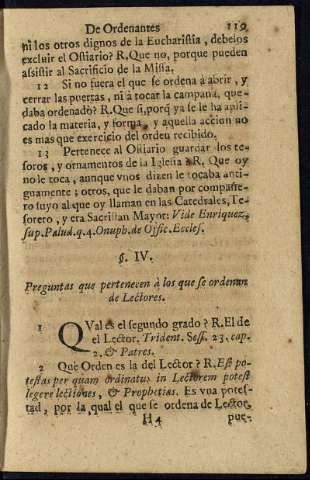 De Ordenantes 119
ni los otros dignos de la Eucharistia, debelos
excluir el Ostiario? R. Que no, porque pueden
assistir al Sacrificio de la Missa.
12 Si no fuera el que se ordena à abrir, y
cerrar las puertas, ni à tocar la campana, que-
daba ordenado? R. Que si, porq̃ ya se le ha apli-
cado la materia, y forma, y aquella accion no
es mas que exercicio del orden recibido.
13 Pertenece al Ostiario guardar los te-
soros, y ornamentos de la Iglesia? R. Que oy
no le toca, aunque vnos dizen le tocaba anti-
guamente; otros, que le daban por compañe-
ro suyo al que oy llaman en las Catedrales, Te-
sorero, y era Sacristan Mayor: Vide Enriquez,
sup. Palud. q. 4. Onuph. de Offic. Eccles.
§. IV.
Preguntas que pertenecen à los que se ordenan
de Lectores.
1 QVal es el segundo grado? R. El de
el Lector. Trident. Sess. 23. cap.
2. & Patres.
2 Que Orden es la del Lector? R. Est po-
testas per quam ordinatus in Lectorem potest
legere lectiones, & Prophetias. Es vna potes-
tad, por la qual el que se ordena de Lector,
H4 pue-